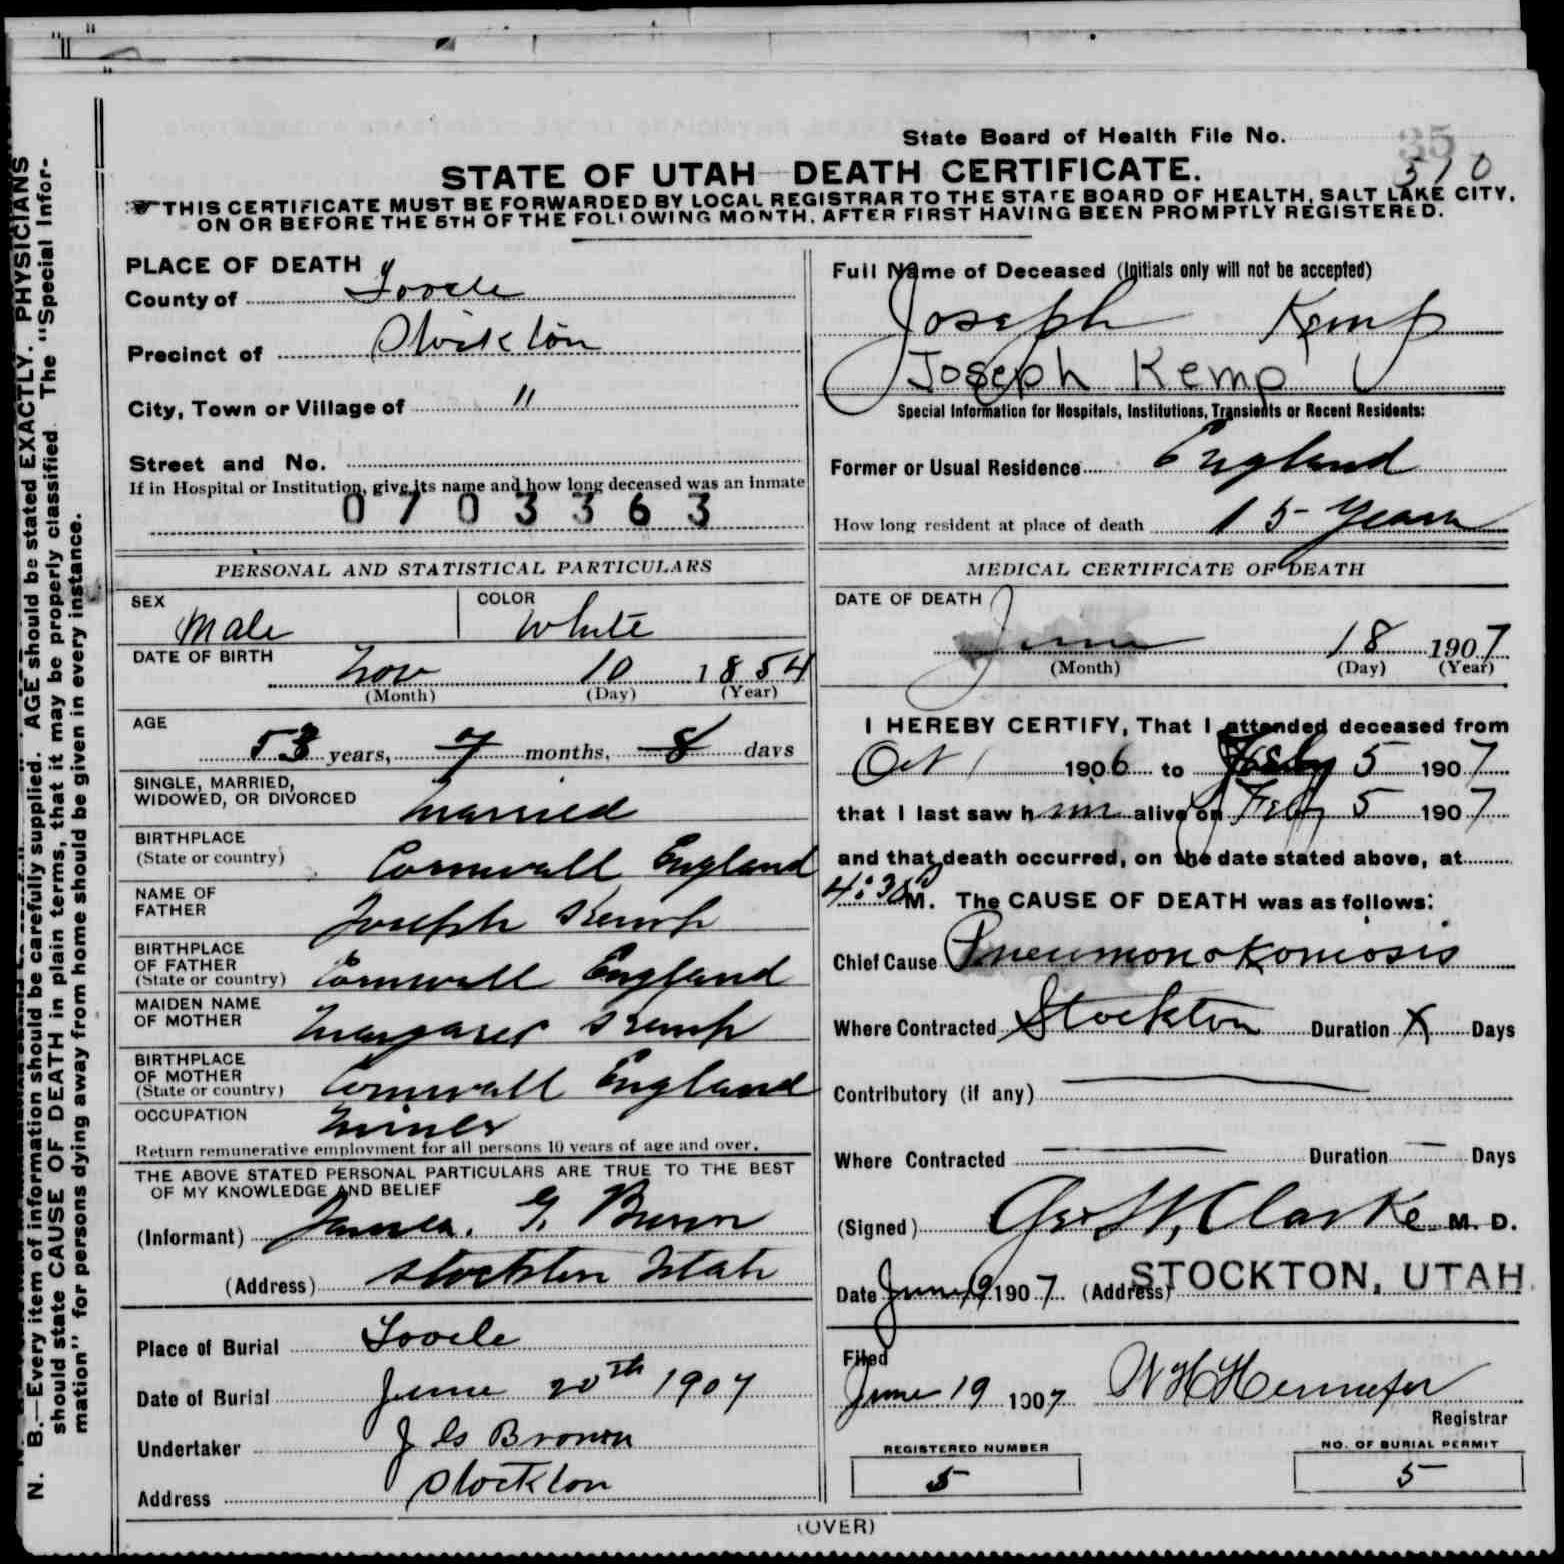 State Board of Health File No.
35
310
STATE OF UTAH DEATH CERTIFICATE.
THIS CERTIFICATE MUST BE FORWARDED BY LOCAL REGISTRAR TO THE STATE BOARD OF HEALTH, SALT LAKE CITY,
ON OR BEFORE THE 5TH OF THE FOLLOWING MONTH, AFTER FIRST HAVING BEEN PROMPTLY REGISTERED.
PLACE OF DEATH
County of Tooele
Precinct of Stockton
City, Town or Village of "
Street and No.
If in Hospital or Institution, give its name and how long deceased was an inmate
0703363
PERSONAL AND STATISTICAL PARTICULARS
SEX
Male
COLOR
White
DATE OF BIRTH
Nov 10 1854
(Month) (Day) (Year)
AGE
53 years, 7 months, 8 days
SINGLE, MARRIED,
WIDOWED, OR DIVORCED
Married
BIRTHPLACE
(State or country)
Cornwall England
NAME OF
FATHER
Joseph Kemp
BIRTHPLACE
OF FATHER
(State or country)
Cornwall England
MAIDEN NAME
OF MOTHER
Margaret Kemp
BIRTHPLACE
OF MOTHER
(State or country)
Cornwall England
OCCUPATION
Miner
Return remunerative employment for all persons 10 years of age and over.
THE ABOVE STATED PERSONAL PARTICULARS ARE TRUE TO THE BEST
OF MY KNOWLEDGE AND BELIEF
(Informant) James. G. Brown
(Address) Stockton Utah
Place of Burial Tooele
Date of Burial June 20th 1907
Undertaker J G Brown
Address Stockton
Full Name of Deceased (Initials only will not be accepted)
Joseph Kemp
Joseph Kemp
Special Information for Hospitals, Institutions, Transients or Recent Residents:
Former or Usual Residence England
How long resident at place of death 15 Years
MEDICAL CERTIFICATE OF DEATH
DATE OF DEATH
June 18 1907
(Month) (Day) (Year)
I HEREBY CERTIFY, That I attended deceased from
Oct 1 1906 to 5 1907
that I last saw him alive on Feby 5 1907
and that death occurred, on the date stated above, at
4:30 P M. The CAUSE OF DEATH was as follows:
Chief Cause Pneumonokoniosis
Where Contracted Stockton Duration X Days
Contributory (if any)
Where Contracted Duration Days
(Signed) Geo W, Clarke M. D.
Date June 19 1907 (Address) STOCKTON, UTAH
Filed
June 19 1907
Registrar
REGISTERED NUMBER
5
NO. OF BURIAL PERMIT
5
(OVER)
N. B.—Every item of information should be carefully supplied. AGE should be stated EXACTLY. PHYSICIANS
should state CAUSE OF DEATH in plain terms, that it may be properly classified The "Special Infor-
mation" for persons dying away from home should be given in every instance.